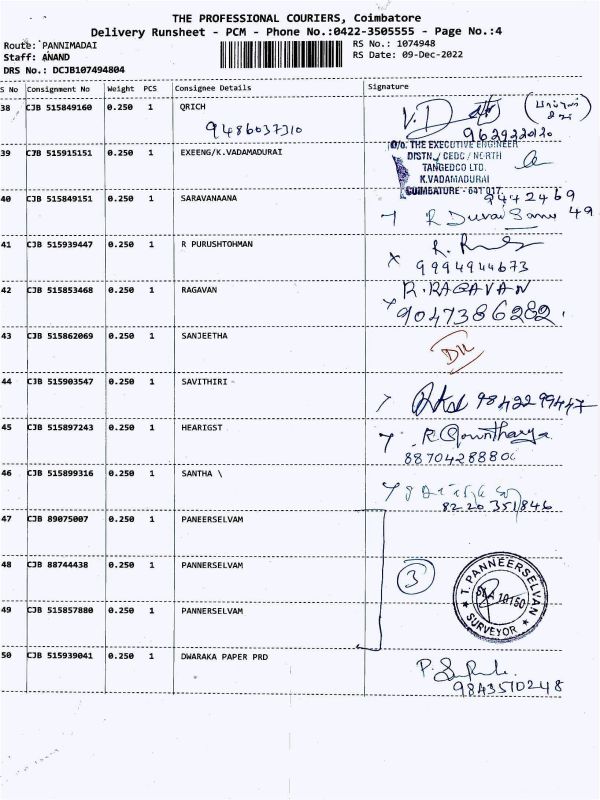 THE PROFESSIONAL COURIERS, Coimbatore
Delivery Runsheet - PCM - Phone No.:0422-3505555 - Page No.:4
Route: PANNIMADAI
Staff: ANAND
DRS No.: DCJB107494804
RS No.: 1074948
RS Date: 09-Dec-2022
S No Consignment No Weight PCS Consignee Details Signature
38 CJB 515849160 0.250 1 QRICH
9486037310
39 CJB 515915151 0.250 1 EXEENG/K.VADAMADURAI
O/o. THE EXECUTIVE ENGINEER
DISTN./ CEDC / NORTH
TANGEDCO LTD.
K.VADAMADURAI
COIMBATORE - 641 017.
40 CJB 515849151 0.250 1 SARAVANAANA
9442469
R Durai Samy 49
41 CJB 515939447 0.250 1 R PURUSHTOHMAN
9994944673
42 CJB 515853468 0.250 1 RAGAVAN
R.RAGAVAN
9047386282
43 CJB 515862069 0.250 1 SANJEETHA
44 CJB 515903547 0.250 1 SAVITHIRI
9842299447
45 CJB 515897243 0.250 1 HEARIGST
R Gowthary
46 CJB 515899316 0.250 1 SANTHA \
8220351846
47 CJB 89075007 0.250 1 PANEERSELVAM
48 CJB 88744438 0.250 1 PANNERSELVAM
3
T. PANNEERSELVAN
SURVEYOR
49 CJB 515857880 0.250 1 PANNERSELVAM
50 CJB 515939041 0.250 1 DWARAKA PAPER PRD
9843510248